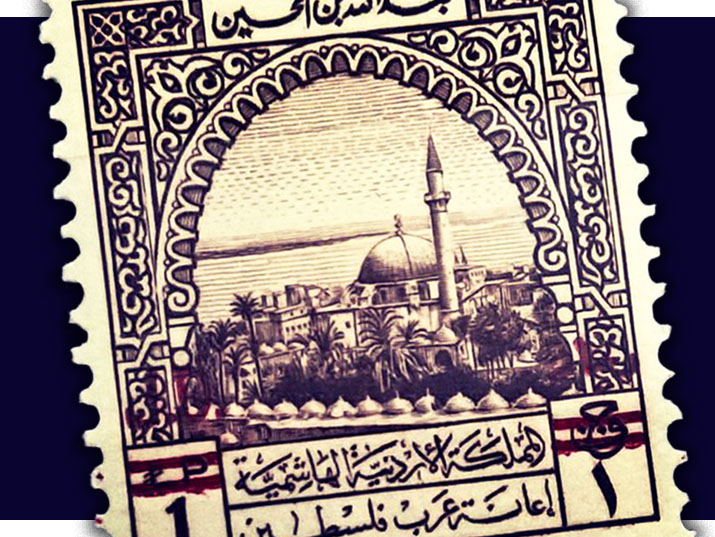 عبد الله بن الحسين
المملكة الأردنية الهاشمية
إعانة عرب فلسطين
١
1